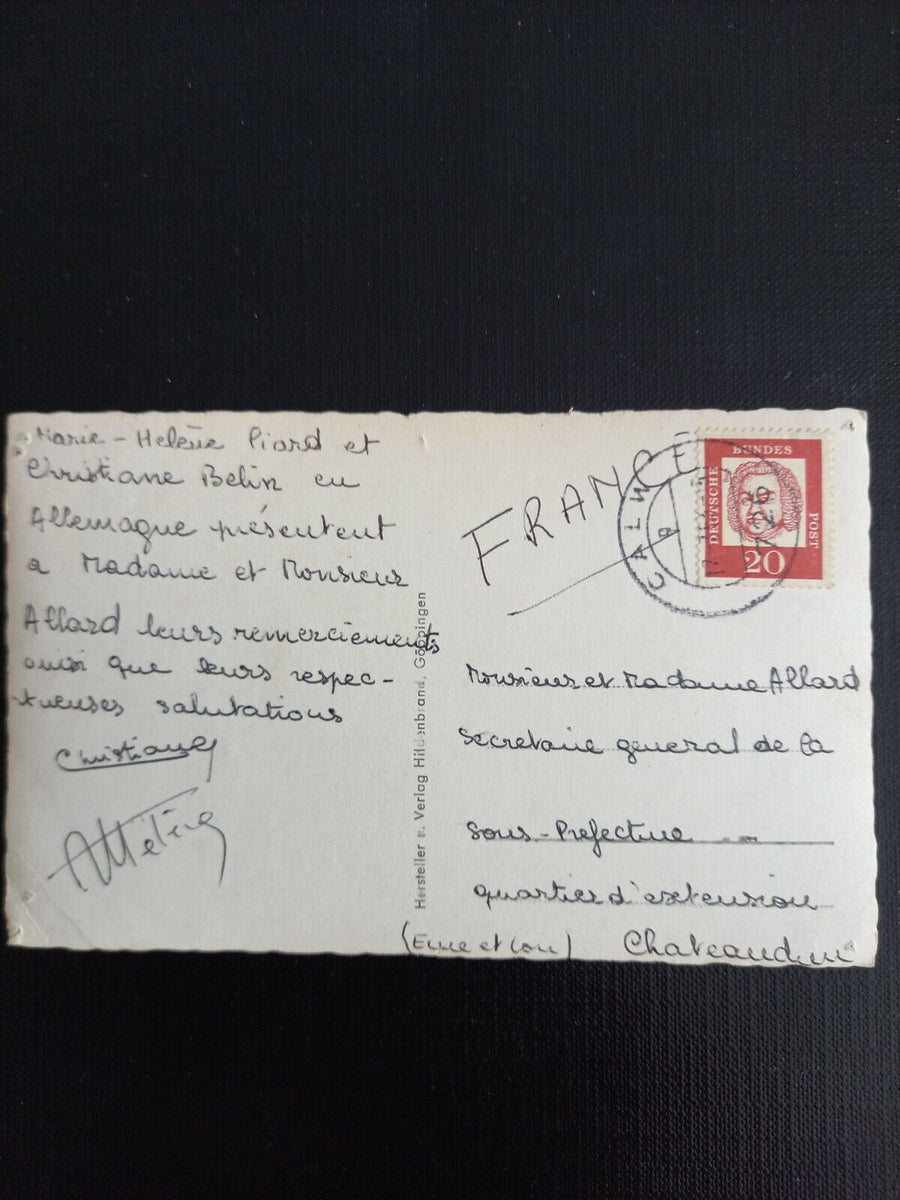 Marie-Helène Piard et
Christiane Belin en
Allemagne présentent
a Madame et Monsieur
Allard leurs remerciements
ainsi que leurs respec-
tueuses salutations
Christiane
Hersteller u. Verlag Hildenbrand, Göppingen
FRANCE
CALW
a
DEUTSCHE
BUNDES
POST
20
Monsieur et Madame Allard
Secretaire general de la
Sous-Prefecture
quartier d'extension
(Eure et Loir) Chateaudun